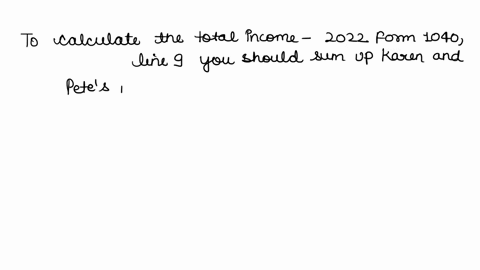 To calculate the total income - 2022 Form 1040,
line 9 you should sum up Karen and
Pete's